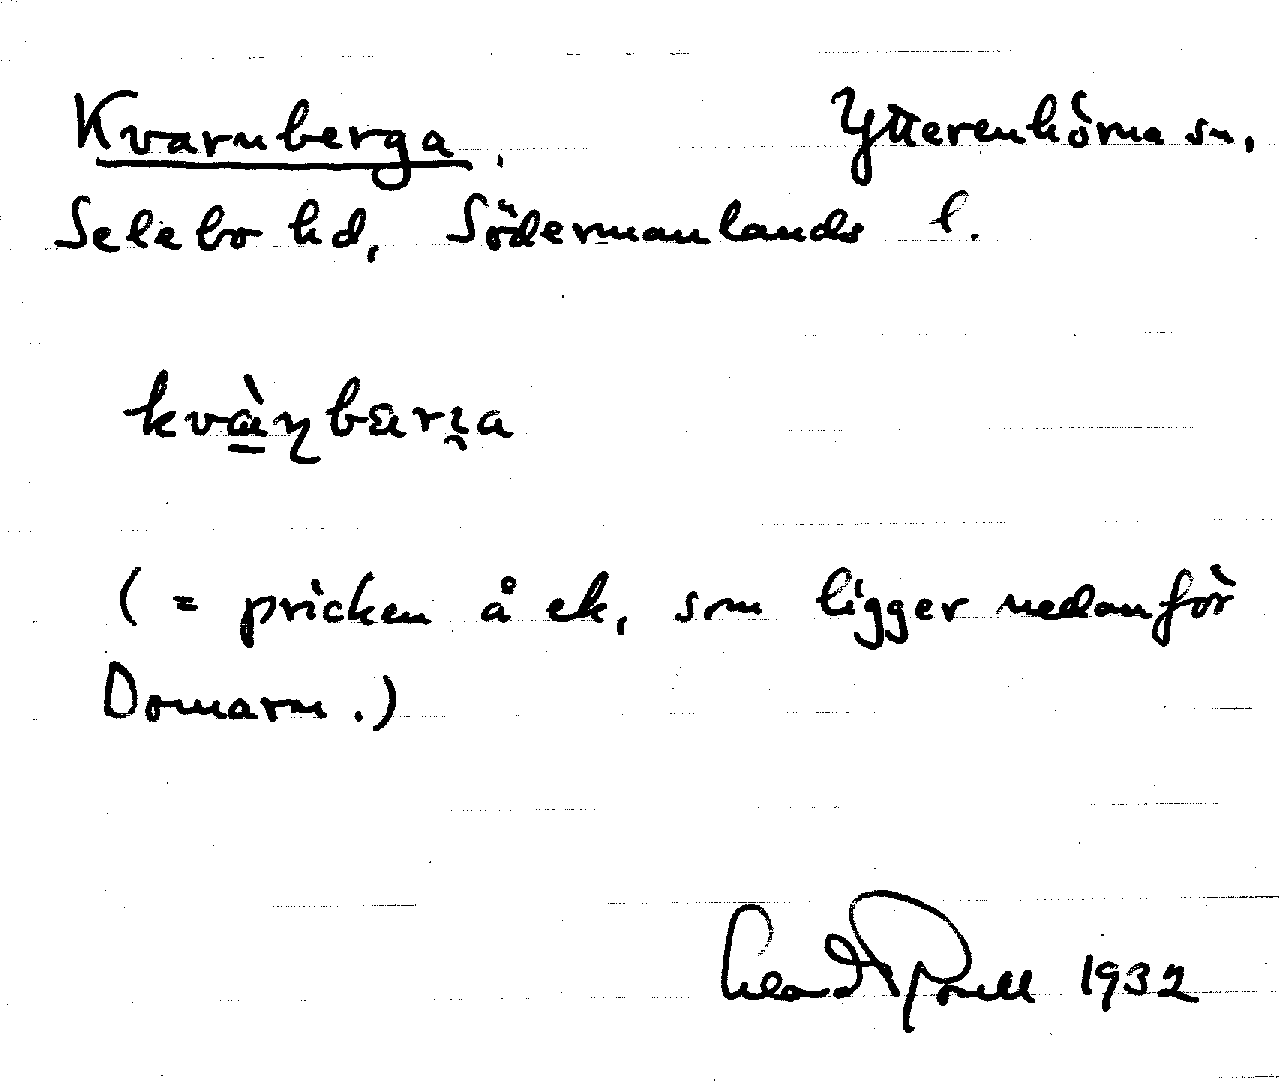 Kvarnberga. Ytterenhörna sn,
Selebo hd, Södermanlands l.
kvàɳbærɪ̯a
(= pricken å ek, som ligger nedanför
Domarn.)
1932